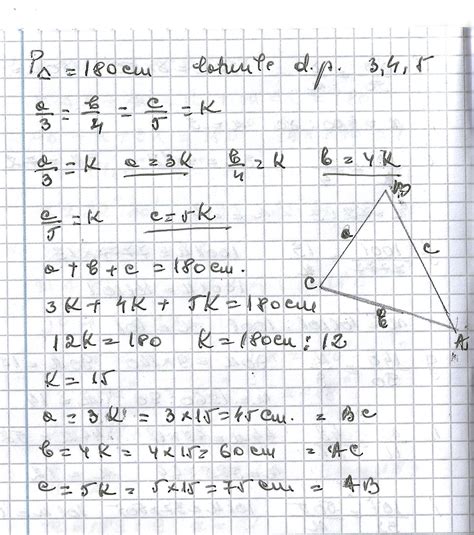 P△ = 180cm laturile d.p. 3,4,5
a/3 = b/4 = c/5 = K
a/3 = K a = 3K b/4 = K b = 4K
c/5 = K c = 5K
a + b + c = 180cm.
3K + 4K + 5K = 180cm
12K = 180 K = 180cm : 12
K = 15
a = 3K = 3×15 = 45cm. = BC
b = 4K = 4×15 = 60cm = AC
c = 5K = 5×15 = 75cm = AB
B
a
c
C
b
A